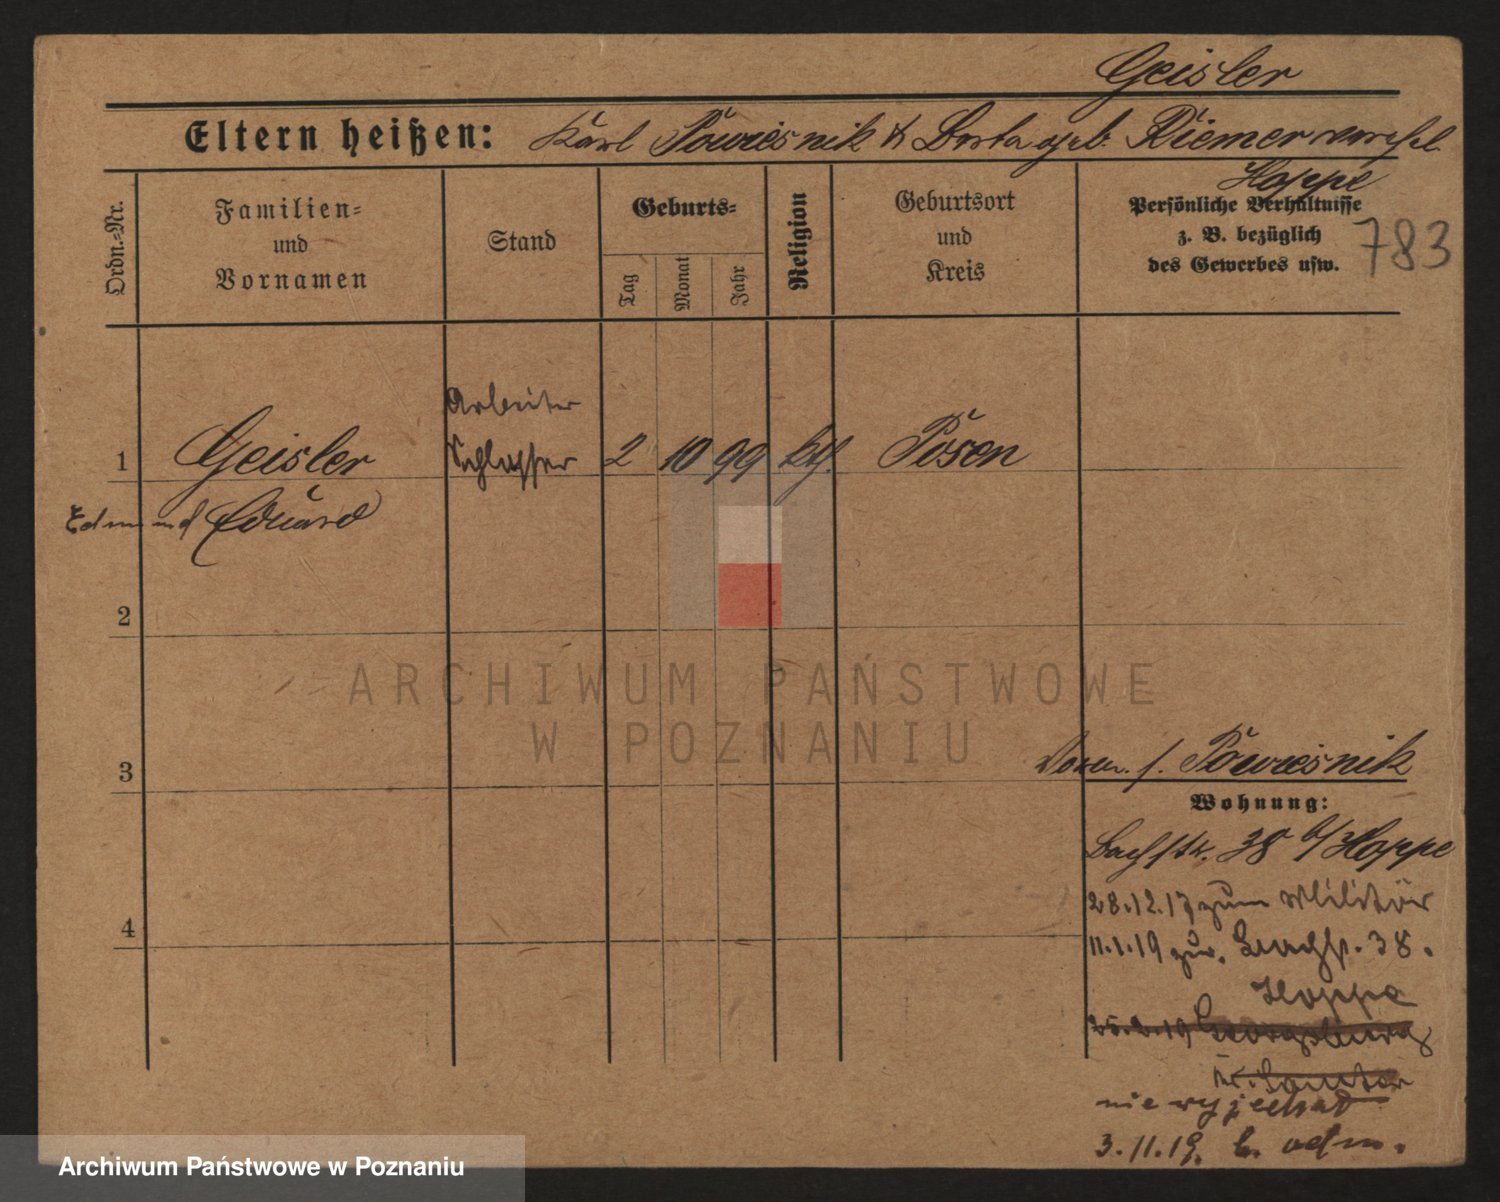 Geisler
Eltern heißen: Karl Powiesnik & Dorta geb. Riemer verehel.
Hoppe
Ordn.-Nr.
Familien-
und
Vornamen
Stand
Geburts-
Tag
Monat
Jahr
Religion
Geburtsort
und
Kreis
Persönliche Verhältnisse
z. B. bezüglich
des Gewerbes usw.
783
Arbeiter
1 Geisler Schlosser 2 10 99 kth. Posen
Edmund Eduard
2
3
4
f. Powiesnik
Wohnung:
Bachstr. 38 b/ Hoppe
28.12.17 zum Militär
11.1.19 zur. Bachstr. 38.
Hoppe
25.2.19 Georgsburg
Kr. Samter
nie wyjechał
3.11.19.
ARCHIWUM PAŃSTWOWE
W POZNANIU
Archiwum Państwowe w Poznaniu